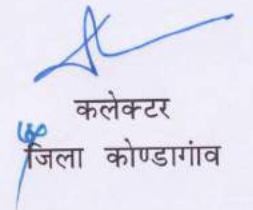 कलेक्टर
जिला कोण्डागांव